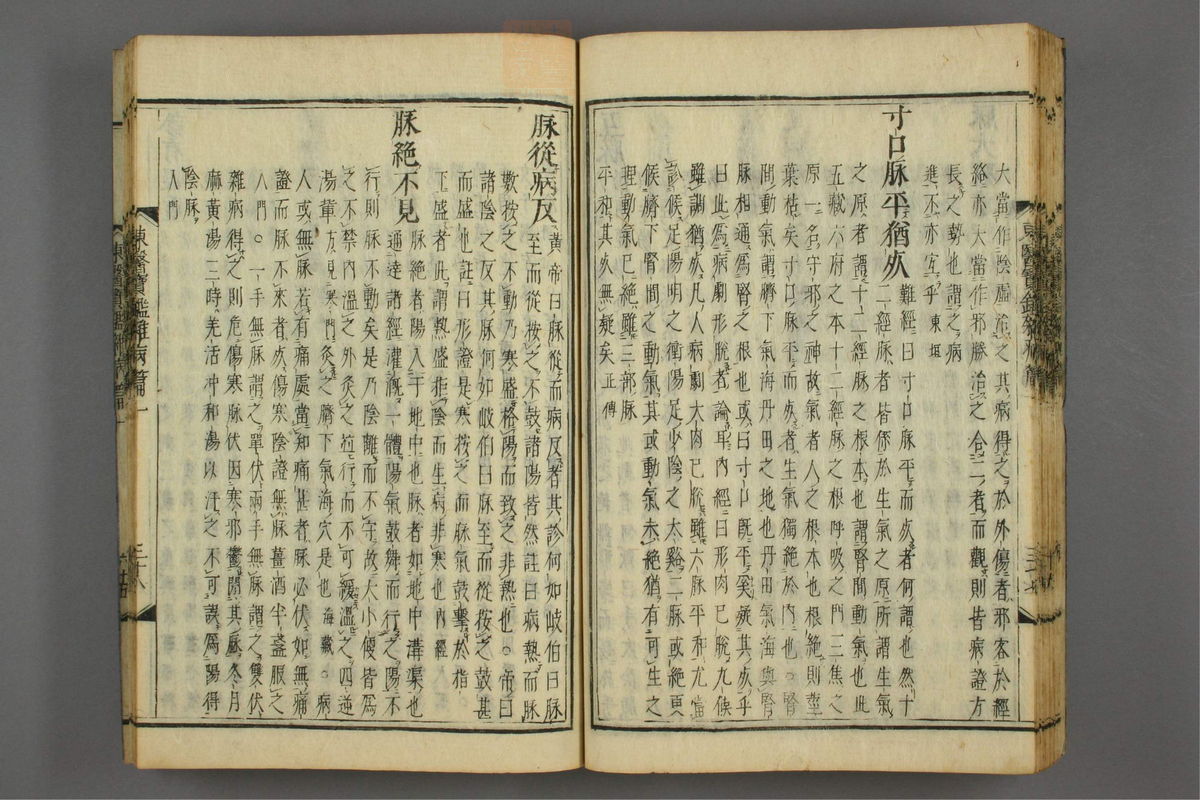 大當作陰虛治之其病得之於外傷者邪客於經
絡亦大當作邪勝治之合二者而觀則皆病證方
長之勢也謂之病
進不亦宜乎東垣
寸口脉平猶死
難經曰寸口脉平而死者何謂也然十
二經脉者皆係於生氣之原所謂生氣
之原者謂十二經脉之根本也謂腎間動氣也此
五藏六府之本十二經脉之根呼吸之門三焦之
原一名守邪之神故氣者人之根本也根絶則莖
葉枯矣寸口脉平而死者生氣獨絶於內也○腎
間動氣謂臍下氣海丹田之地也丹田氣海與腎
脉相通爲腎之根也或曰寸口旣平奚疑其死乎
曰此爲病劇形脫者論耳內經曰形肉已脫九候
雖調猶死凡人病劇大肉已脫雖六脉平和尤當
診候足陽明之衝陽足少陰之太谿二脉或絶更
候臍下腎間之動氣其或動氣未絶猶有可生之
理動氣已絶雖三部脉
平和其死無疑矣正傳
脉從病反
黃帝曰脉從而病反者其診何如岐伯曰脉
至而從按之不鼓諸陽皆然註曰病熱而脉
數按之不動乃寒盛格陽而致之非熱也○帝曰
諸陰之反其脉何如岐伯曰脉至而從按之鼓甚
而盛也註曰形證是寒按之而脉氣鼓擊於指
下盛者此謂熱盛拒陰而生病非寒也內經
脉絶不見
脉絶者陽入于地中也脉者如地中溝渠也
通達諸經灌漑一體陽氣鼓舞而行之陽不
行則脉不動矣是乃陰離而不守故大小便皆爲
之不禁內溫之外灸之抑行而不可緩溫之四逆
湯輩方見寒門灸之臍下氣海穴是也海藏○病
人或無脉若有痛處當知痛甚者脉必伏如無痛
證而脉不來者死傷寒陰證無脉薑酒半盞服之
入門○一手無脉謂之單伏兩手無脉謂之雙伏
雜病得之則危傷寒脉伏因寒邪鬱閉其脉冬月
麻黃湯三時羌活冲和湯以汗之不可誤爲陽得
陰脉
入門
東醫寶鑑雜病篇一
三十八